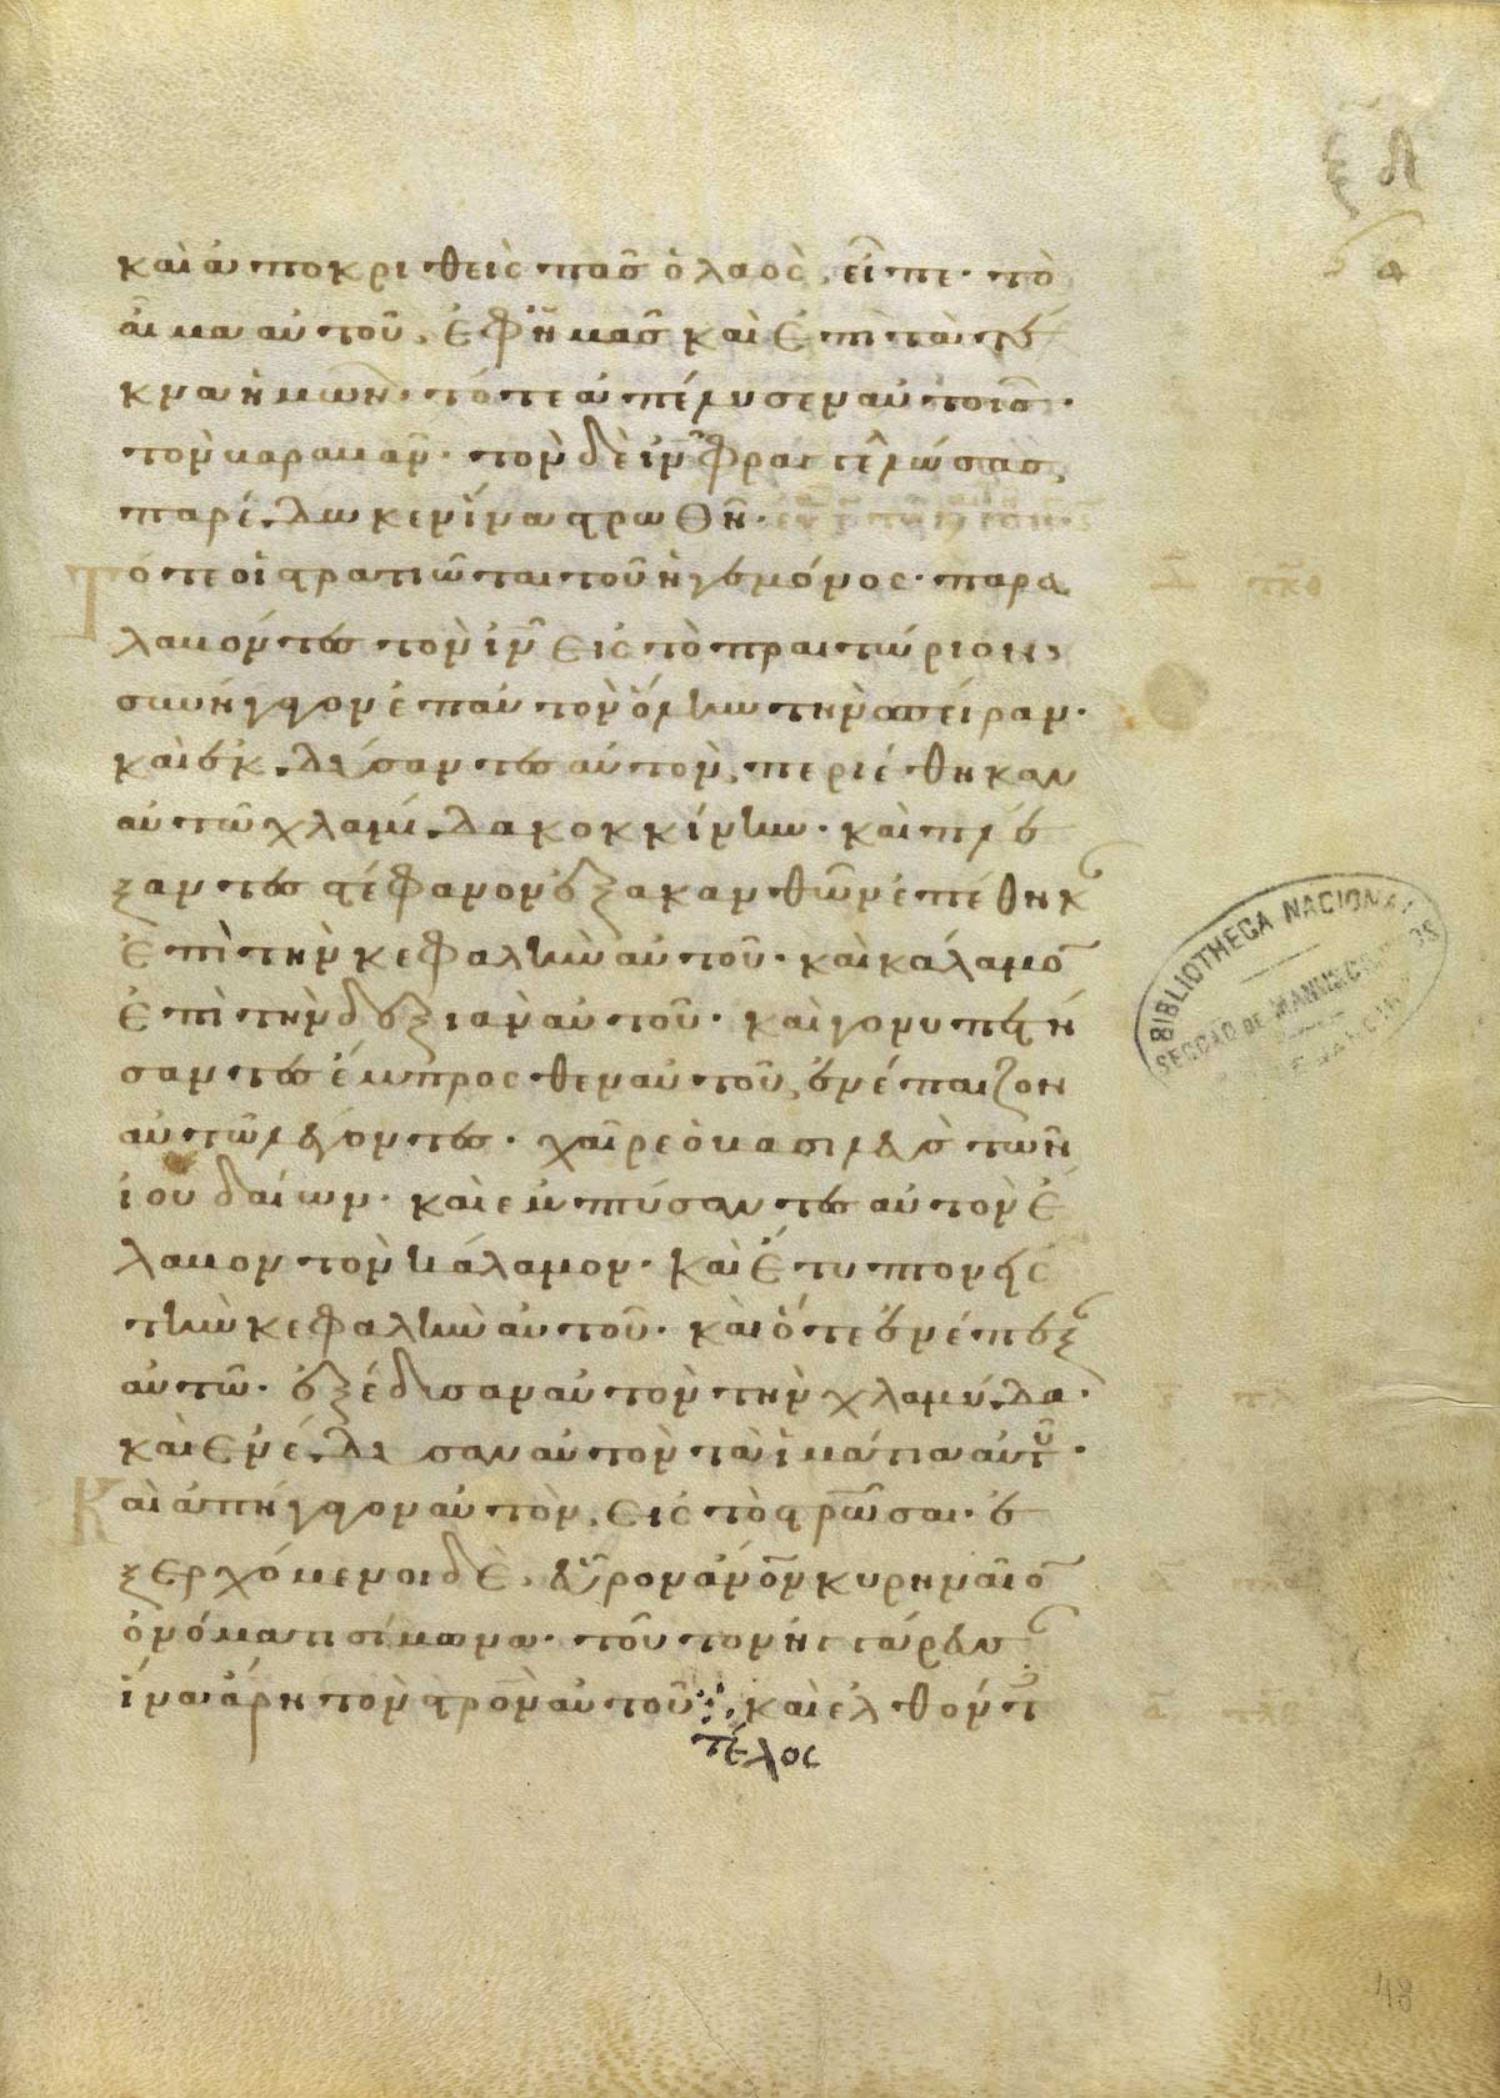 ξδ
καὶ ἀποκριθεὶς πᾶς ὁ λαὸς, εἶπε· τὸ
αἷμα αὐτοῦ, ἐφ ἡμᾶς καὶ ἐπὶ τὰ τέ
κνα ἡμῶν· τότε ἀπέλυσεν αὐτοῖς·
τὸν βαραβᾶν· τὸν δὲ ἰν φραγελλώσας,
παρέδωκεν ἵνα στρωθῆ·
Τότε οἱ στρατιῶται τοῦ ἡγεμόνος· παρα
λαβόντες τὸν ἰν εἰς τὸ πραιτώριον,
συνήγαγον ἐπ αὐτὸν ὅλην τὴν σπείραν·
καὶ ἐκδύσαντες αὐτὸν, περιέθηκαν
αὐτῶ χλαμύδα κοκκίνην· καὶ πλέ
ξαντες στέφανον ἐξ ἀκανθῶν ἐπέθηκ
ἐπὶ τὴν κεφαλὴν αὐτοῦ· καὶ κάλαμο
ἐπὶ τὴν δεξιὰν αὐτοῦ· καὶ γονυπετή
σαντες ἔμπροσθεν αὐτοῦ, ἐνέπαιζον
αὐτῶ λέγοντες· χαῖρε ὁ βασιλεὺς τῶν
ἰουδαίων· καὶ ἐμπτύσαντες αὐτὸν ἔ
λαβον τὸν κάλαμον· καὶ ἔτυπτον εἰς
τὴν κεφαλὴν αὐτοῦ· καὶ ὅτε ἐνέπαιξ
αὐτῶ· ἐξέδυσαν αὐτὸν τὴν χλαμύδα·
καὶ ἐνέδυσαν αὐτὸν τὰ ἱμάτια αὐτοῦ·
Καὶ ἀπήγαγον αὐτὸν, εἰς τὸ στρῶσαι· ἐ
ξερχόμενοι δὲ, εὗρον ἀνον κυρηναῖο
ὀνόματι σίμωνα· τοῦτον ἠγγάρευσ
ἵνα ἄρη τὸν στρον αὐτοῦ: καὶ ἐλθόντ
τέλος
BIBLIOTHECA NACIONAL
SECCÃO DE MANUSCRIPTOS
48